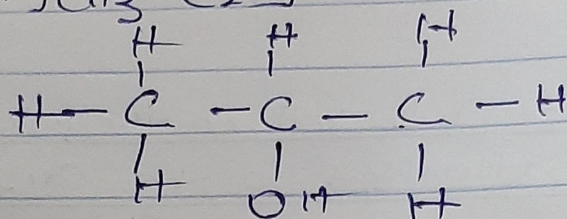 H H H
H — C — C — C — H
H OH H